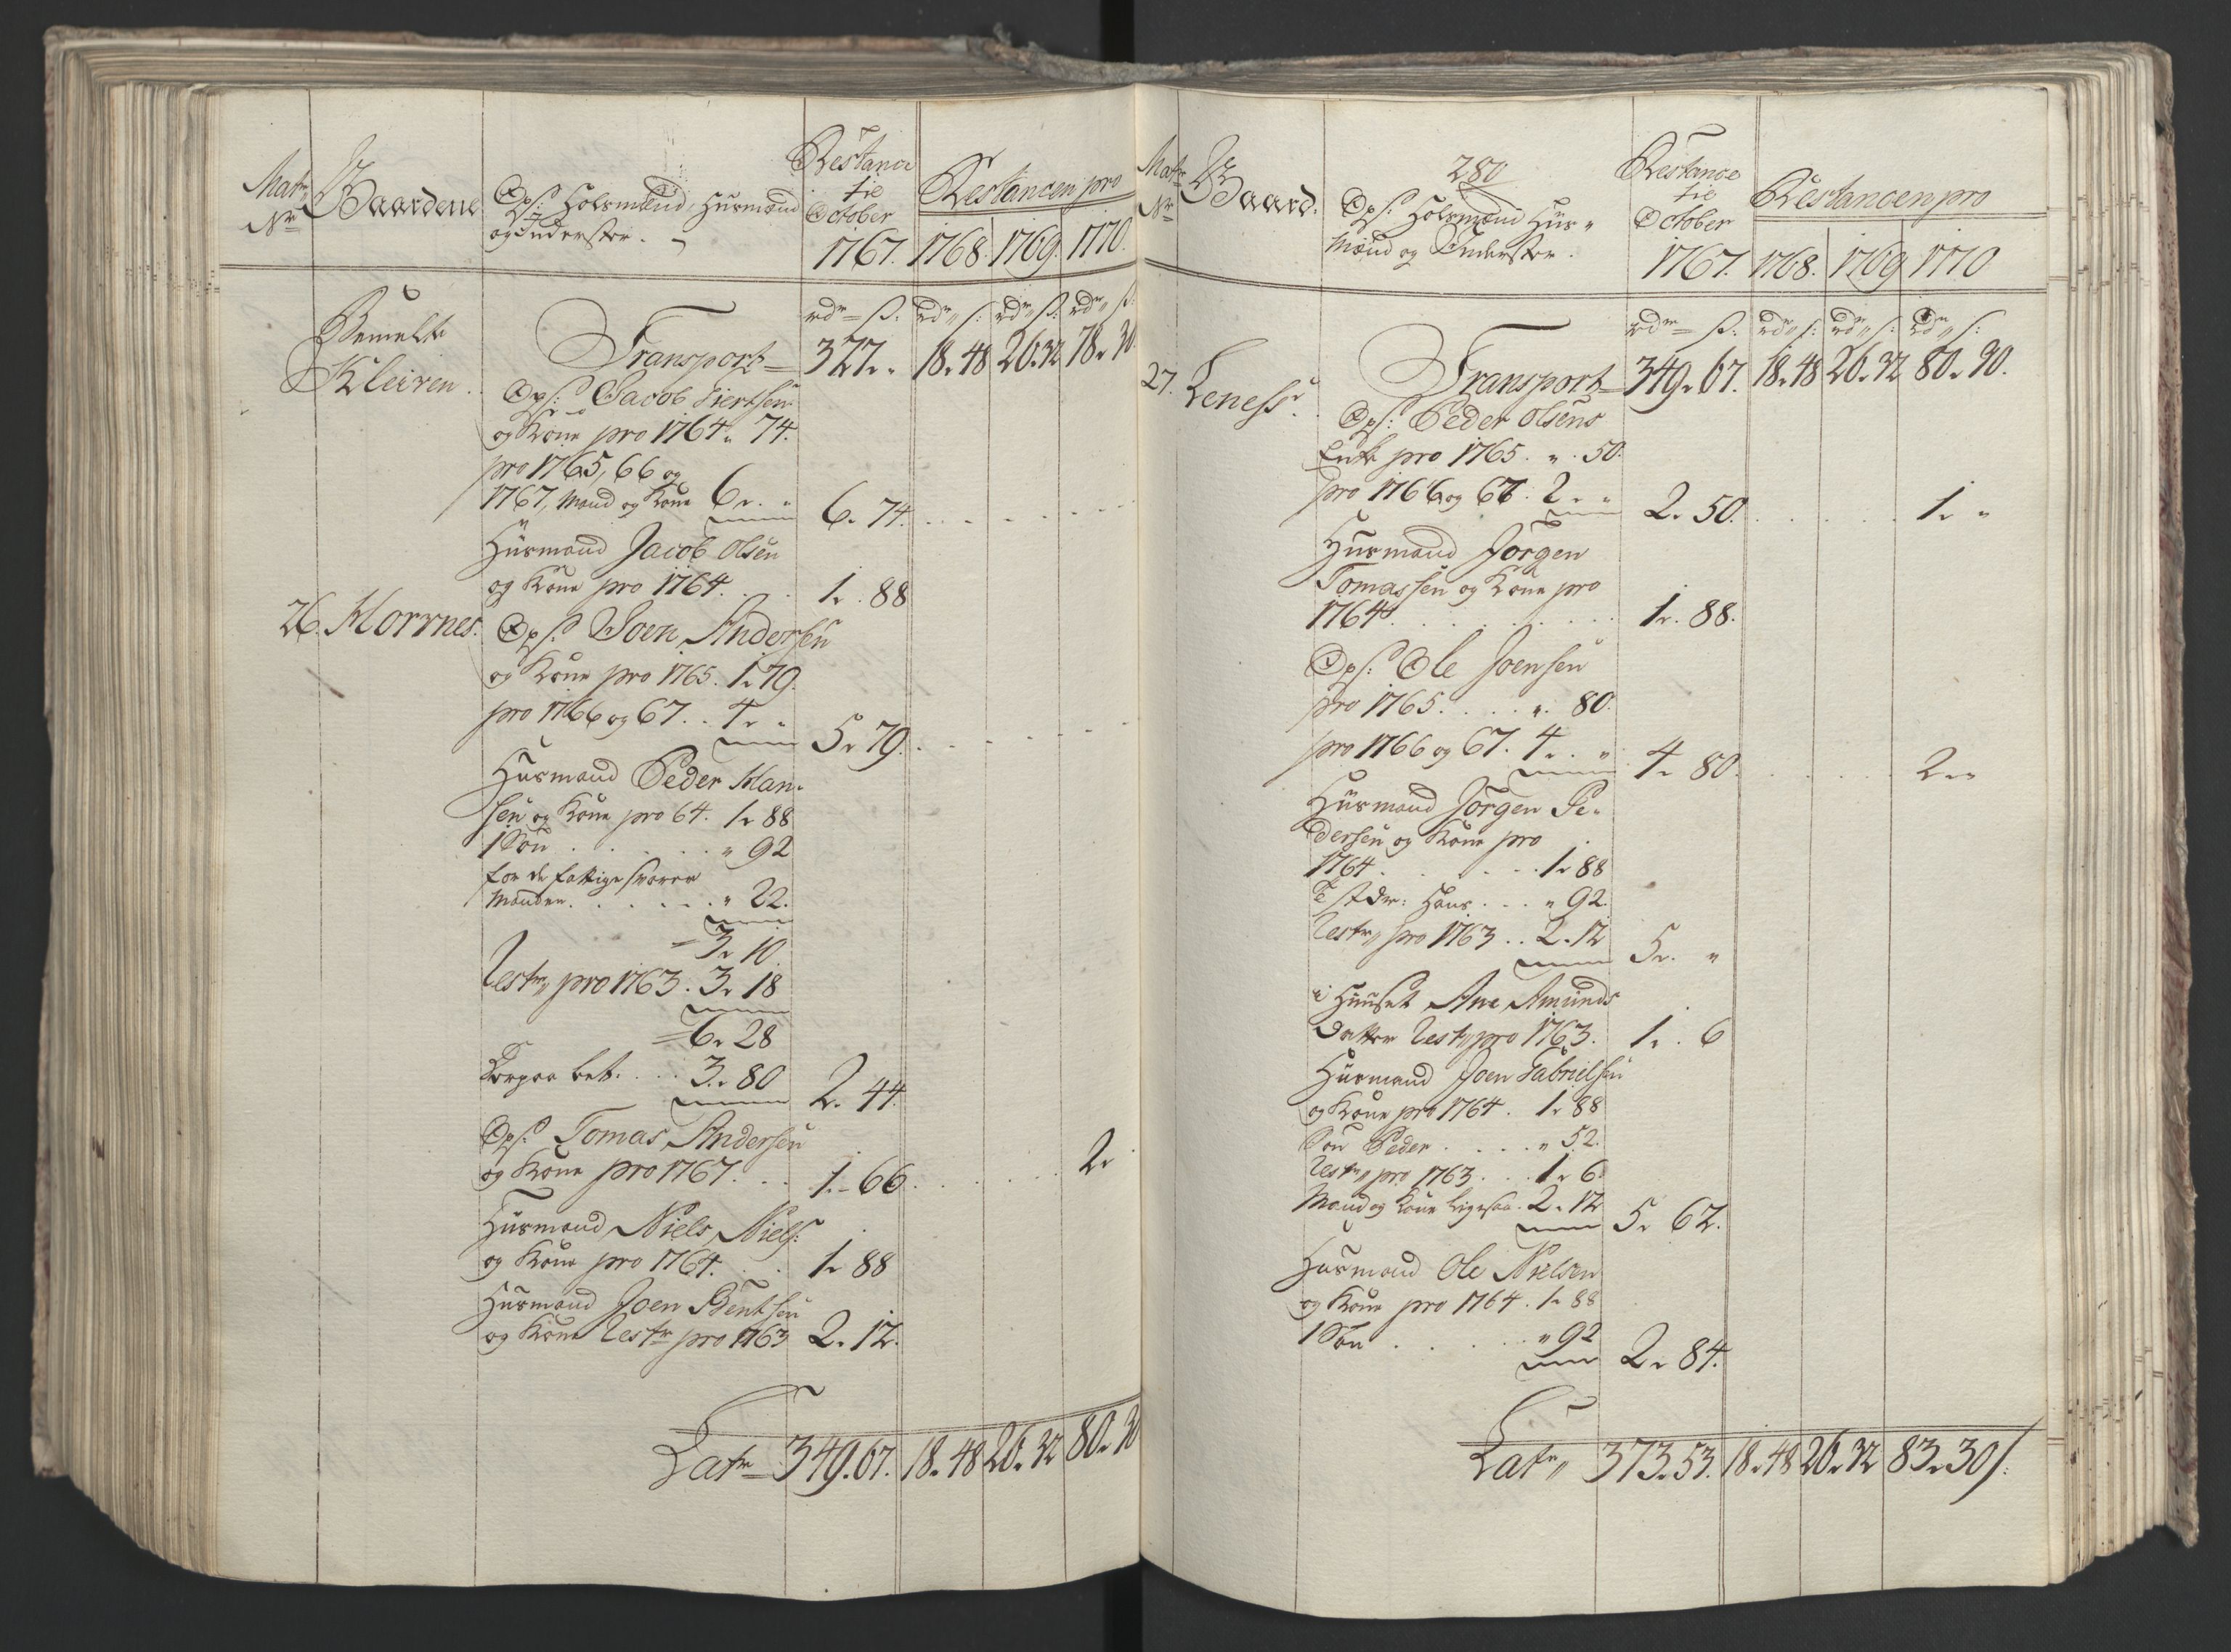 Matr: Nr
Gaardene
Ops: Holsmænd, Husmænd
og Inderster.
Restance
til
October
1767.
Restancen pro
1768. 1769. 1770.
rdr ß. rdr ß: rdr ß: rdr ß:
Bemelte
Kleiven.
Transport 327. " 18. 48 26. 32 78. 30.
Ops: Jacob Siertsen
og Kone pro 1764 " 74.
pro 1765, 66 og
1767, Mand og Kone 6. " 6. 74.
Husmand Jacob Olsen
og Kone pro 1764. . . 1. 88
26. Horrnes.
Ops: Joen Andersen
og Kone pro 1765. 1. 79.
pro 1766 og 67. . 4. " 5. 79.
Husmand Peder Han-
sen og Kone pro 64. 1. 88
1 Søn . . . . . " 92
for de fattige svarer
Manden. . . . . . " 22.
3. 10.
Restr pro 1763. 3. 18
6. 28
Derpaa bet. . . . 3. 80 2. 44.
Ops: Tomas Andersen
og Kone pro 1767. . . 1. 66. . . . . . 2.
Husmand Niels Niels:
og Kone pro 1764. . . 1. 88
Husmand Joen Bentsen
og Kone Restr pro 1763 2. 12.
Latr 349. 67. 18. 48 26. 32 80. 30
280
Matr Nr
Gaard.
Ops: Holsmænd Hus-
Mænd og Inderster.
Restance
til
October
1767.
Restancen pro
1768. 1769 1770
rdr ß: rdr ß: rdr ß: rdr ß:
27. Leness.
Transport 349. 67. 18. 48 26. 32 80. 30.
Ops: Peder Olsens
Enke pro 1765. " 50.
pro 1766 og 67: 2. " 2. 50. . . . . . 1. "
Husmand Jörgen
Tomassen og Kone pro
1764. . . . . . . . . 1. 88.
Ops: Ole Joensen
pro 1765. . . . " 80.
pro 1766 og 67. 4. " 4. 80. . . . . 2. "
Husmand Jörgen Pe-
dersen og Kone pro
1764 . . . . . . 1. 88
Hans . . . " 92.
Restr pro 1763 . . 2. 12 5. "
i Huuset Ane Amunds
datter Restr pro 1763. 1. 6
Husmand Joen Gabrielsen
og Kone pro 1764. 1. 88
Søn Peder . . . . " 52.
Restr pro 1763 . . . 1. 6.
Mand og Kone ligesaa. 2. 12 5. 62.
Husmand Ole Nielsen
og Kone pro 1764. 1. 88
1 Søn . . . . . " 92 2. 84.
Latr 373. 53. 18. 48 26. 32 83. 30/: